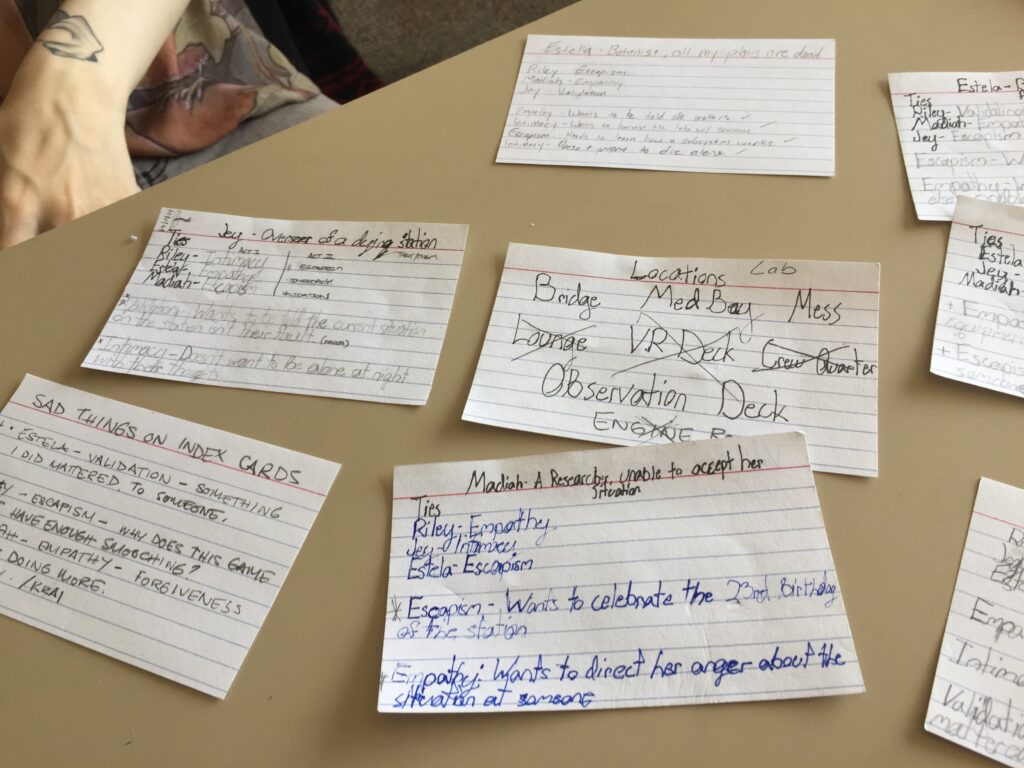 Estela - Botanist, all my plants are dead
Riley - Escapism
Madiah - Empathy
Jey - Validation
Empathy - Wants to be told she matters ✓
Intimacy - Wants to the lab w/ someone ✓
Escapism - Needs to learn how a subsystem works ✓
Intimacy - Doesn't want to die alone ✓
Estela -
Ties
Riley - Validation
Madiah -
Jey - Escapism
Escapism - W
Empathy -
Jey - Overseer of a dying station
Ties
ACT I
ACT II
Riley - Intimacy
Estela - Empathy
Madiah - Escapism
ESCAPISM
INTIMACY
VALIDATION
* Wants to the current situation
on the station isn't their fault
* Intimacy - Doesn't want to be alone at night
with their thoughts
Locations Lab
Bridge Med Bay Mess
Lounge V.R Deck Crew Quarter
Observation Deck
ENGINE R
Ties
Estela
Jey -
Madiah -
+ Empa
+ Escapis
someon
SAD THINGS ON INDEX CARDS
ESTELA - VALIDATION - SOMETHING
I DID MATTERED. TO SOMEONE.
- ESCAPISM - WHY DOES THIS GAME
HAVE ENOUGH SMOOCHING?
AH - EMPATHY - FORGIVENESS
DOING MORE.
/KRAI
Madiah - A Researcher, unable to accept her
situation
Ties
Riley - Empathy
Jey - Intimacy
Estela - Escapism
* Escapism - Wants to celebrate the 23rd Birthday
of the station
* Empathy: Wants to direct her anger about the
situation at someone
Empa
Intima
Validatio
mattered